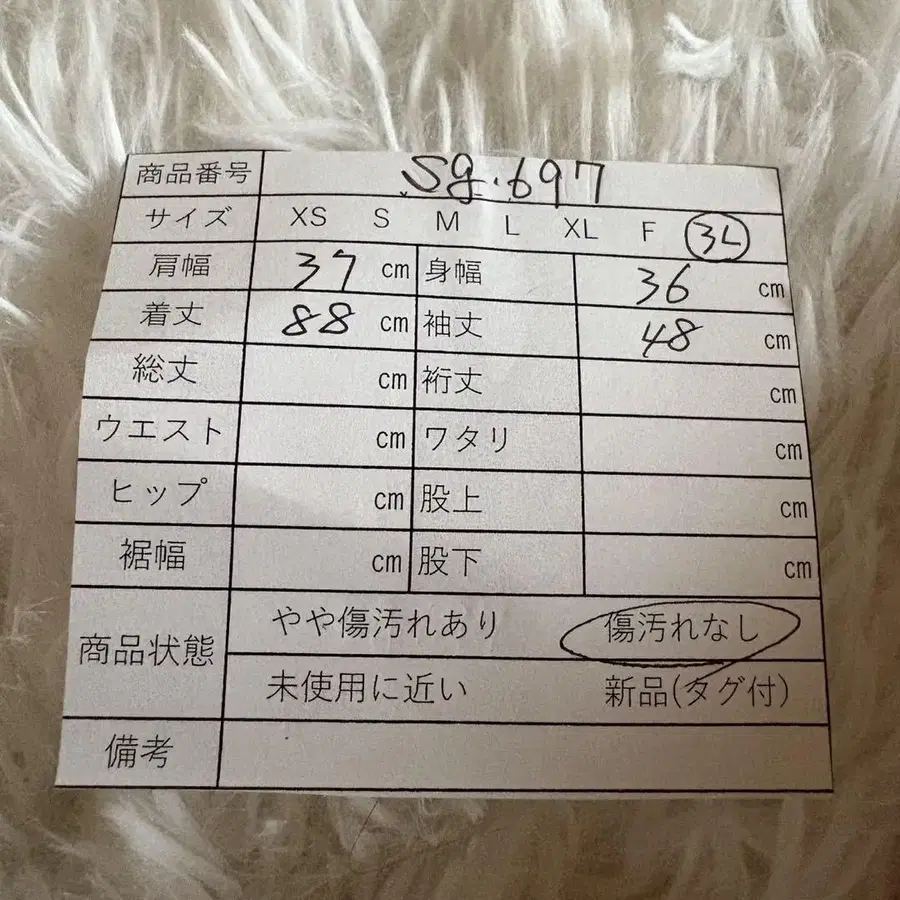 商品番号 sg.697
サイズ XS S M L XL F 3L
肩幅 37 cm 身幅 36 cm
着丈 88 cm 袖丈 48 cm
総丈 cm 裄丈 cm
ウエスト cm ワタリ cm
ヒップ cm 股上 cm
裾幅 cm 股下 cm
商品状態 やや傷汚れあり 傷汚れなし
未使用に近い 新品(タグ付)
備考